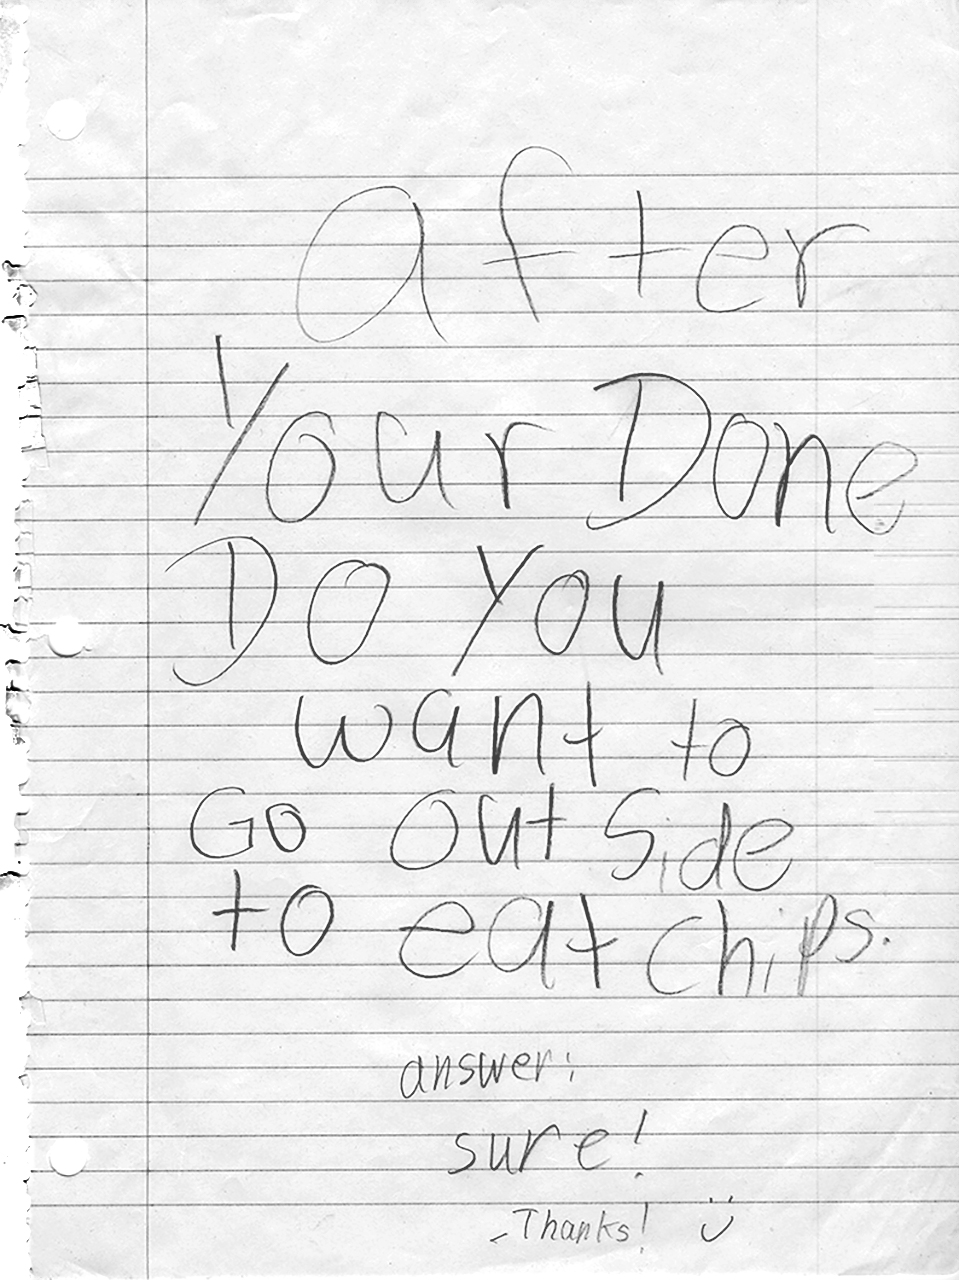 after
Your Done
Do You
want to
Go out Side
to eat chips.
answer:
sure!
- Thanks! :)